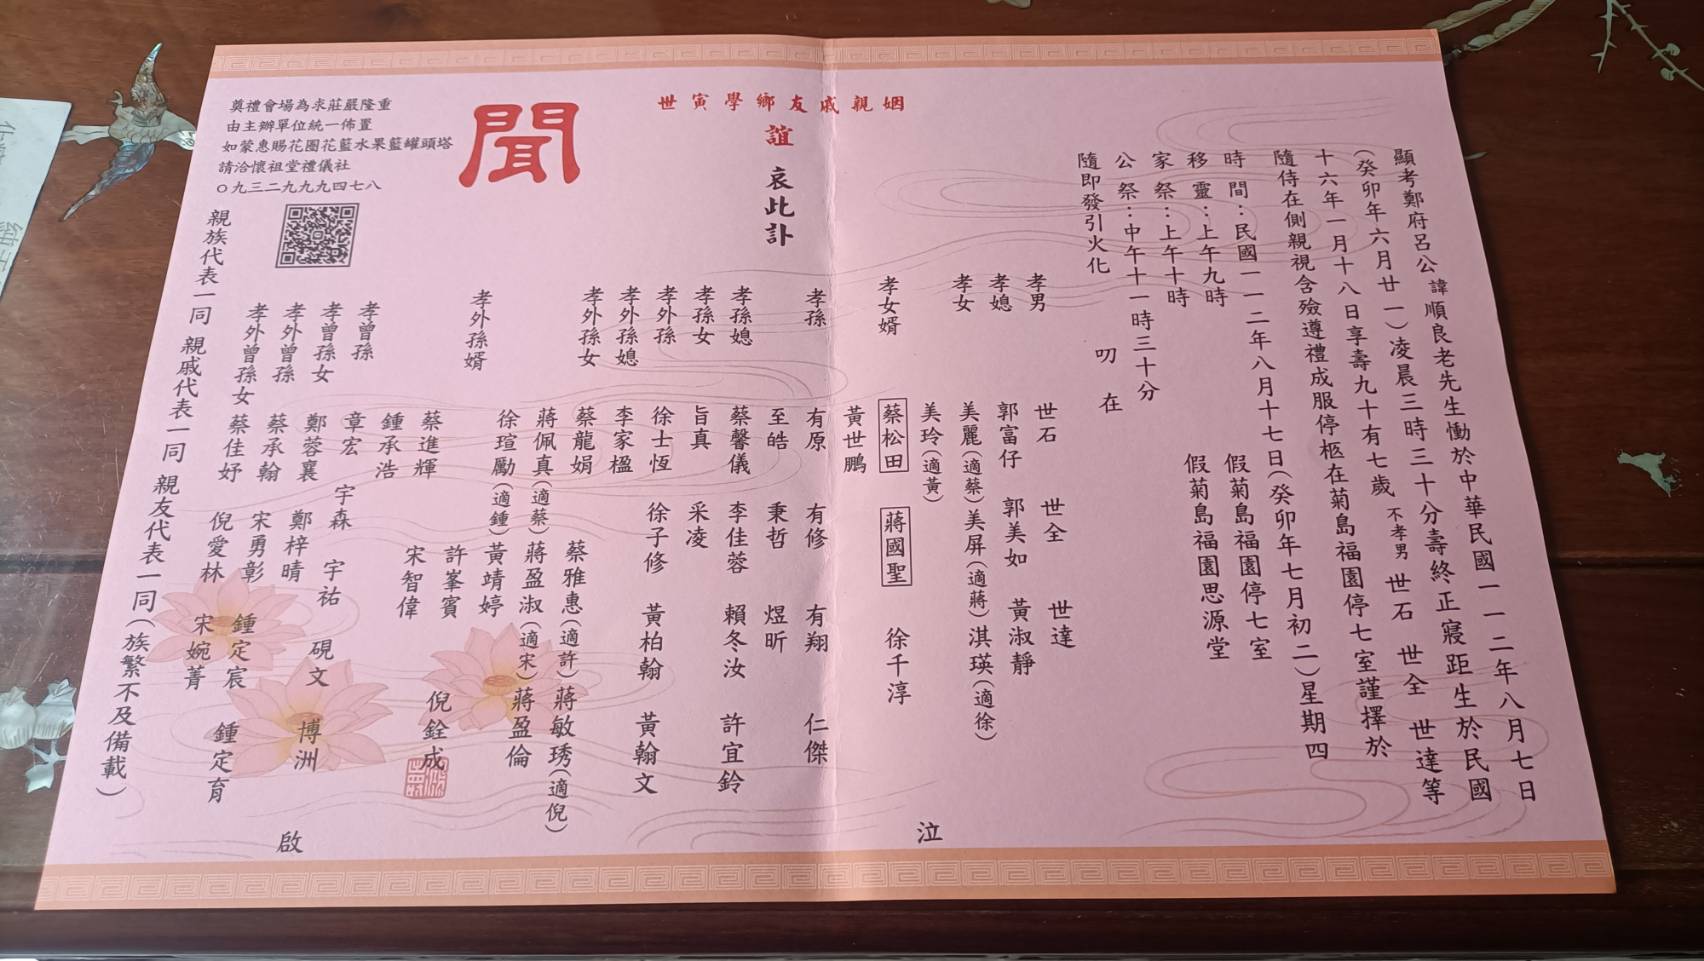 顯考鄭府呂公諱順良老先生慟於中華民國一一二年八月七日
(癸卯年六月廿一)凌晨三時三十分壽終正寢距生於民國
十六年一月十八日享壽九十有七歲不孝男世石 世全 世達等
隨侍在側親視含殮遵禮成服停柩在菊島福園停七室謹擇於
時間:民國一一二年八月十七日(癸卯年七月初二)星期四
移靈:上午九時 假菊島福園停七室
家祭:上午十時 假菊島福園思源堂
公祭:中午十一時三十分
隨即發引火化
叨在
孝男 世石 世全 世達
孝媳 郭富仔 郭美如 黃淑靜
孝女 美麗(適蔡) 美屏(適蔣) 淇瑛(適徐)
美玲(適黃)
孝女婿 蔡松田 蔣國聖 徐千淳
黃世鵬
泣
姻親戚友鄉學寅世
誼
哀此訃
聞
孝孫 有原 有修 有翔 仁傑
至皓 秉哲 煜昕
孝孫媳 蔡馨儀 李佳蓉 賴冬汝 許宜鈴
孝孫女 旨真 采凌
孝外孫 徐士恆 徐子修 黃柏翰 黃翰文
孝外孫媳 李家楹
孝外孫女 蔡龍娟 蔡雅惠(適許) 蔣敏琇(適倪)
蔣佩真(適蔡) 蔣盈淑(適宋) 蔣盈倫
徐瑄勵(適鍾) 黃靖婷
孝外孫婿 蔡進輝 許峯賓 倪銓成
鍾承浩 宋智偉
孝曾孫 章宏 宇森 宇祐 硯文 博洲
孝曾孫女 鄭蓉襄 鄭梓晴
孝外曾孫 蔡承翰 宋勇彰 鍾定宸 鍾定育
孝外曾孫女 蔡佳妤 倪愛林 宋婉菁
親族代表一同 親戚代表一同 親友代表一同(族繁不及備載)
啟
奠禮會場為求莊嚴隆重
由主辦單位統一佈置
如蒙惠賜花圈花籃水果籃罐頭塔
請洽懷祖堂禮儀社
○九三二九九九四七八